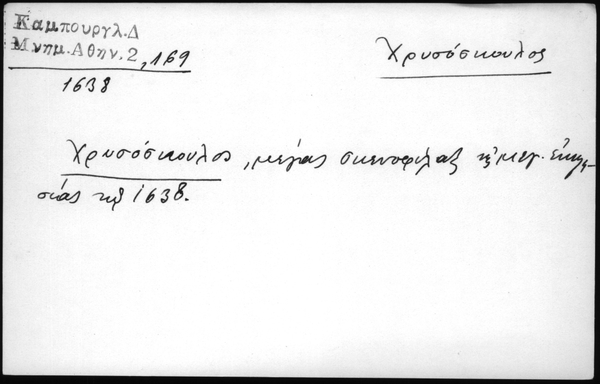 Καμπουργλ.Δ
Μνημ.Αθην.2, 169
1638
Χρυσόσκουλος
Χρυσόσκουλος, μέγας σκευοφύλαξ τῆς μεγ. Ἐκκλη-
σίας τῷ 1638.